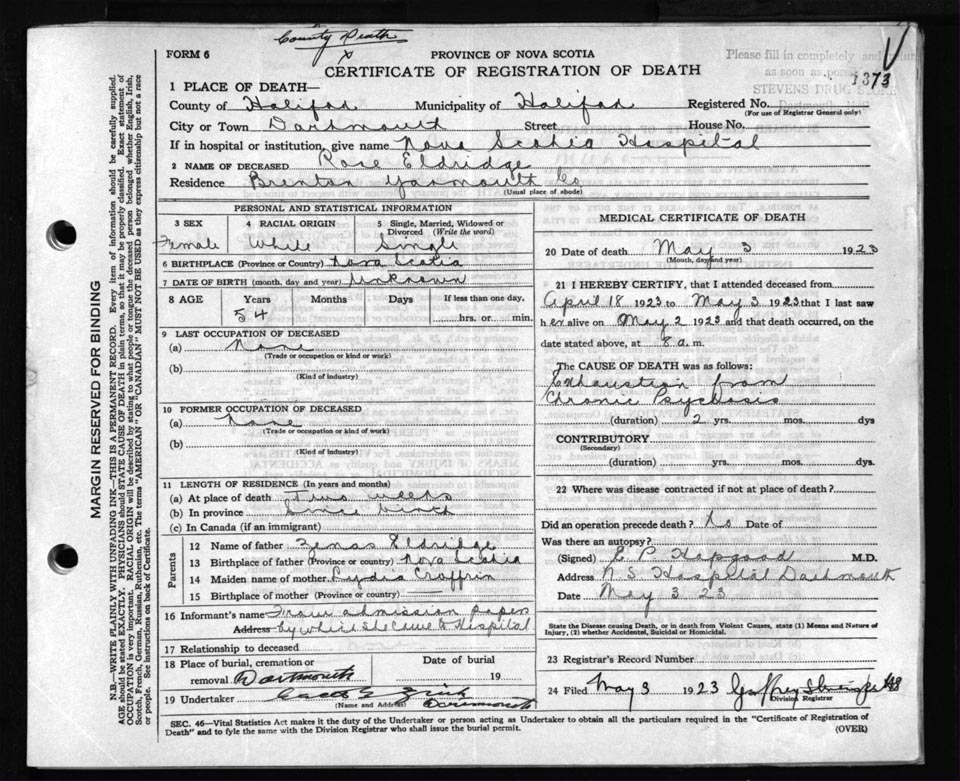 County Death
x
FORM 6
PROVINCE OF NOVA SCOTIA
CERTIFICATE OF REGISTRATION OF DEATH
Please fill in completely and
as soon as
STEVENS DRUG STORE
1373
1 PLACE OF DEATH—
County of Halifax Municipality of Halifax Registered No.
(For use of Registrar General only)
City or Town Dartmouth Street House No.
If in hospital or institution, give name Nova Scotia Hospital
2 NAME OF DECEASED Rose Eldridge
Residence Brenton Yarmouth Co
(Usual place of abode)
PERSONAL AND STATISTICAL INFORMATION
3 SEX 4 RACIAL ORIGIN 5 Single, Married, Widowed or Divorced (Write the word)
Female White Single
6 BIRTHPLACE (Province or Country) Nova Scotia
7 DATE OF BIRTH (month, day and year) Unknown
8 AGE Years Months Days If less than one day,
54 hrs. or min.
9 LAST OCCUPATION OF DECEASED
(a) None
(Trade or occupation or kind or work)
(b)
(Kind of industry)
10 FORMER OCCUPATION OF DECEASED
(a) None
(Trade or occupation or kind of work)
(b)
(Kind of industry)
11 LENGTH OF RESIDENCE (In years and months)
(a) At place of death Two weeks
(b) In province Since birth
(c) In Canada (if an immigrant)
Parents
12 Name of father Zenas Eldridge
13 Birthplace of father (Province or country) Nova Scotia
14 Maiden name of mother Lydia
15 Birthplace of mother (Province or country)
16 Informant's name From admission papers
Address by which she came to Hospital
17 Relationship to deceased
18 Place of burial, cremation or removal Dartmouth
Date of burial 19
19 Undertaker Dartmouth
(Name and Address)
MEDICAL CERTIFICATE OF DEATH
20 Date of death May 3 1923
(Month, day and year)
21 I HEREBY CERTIFY, that I attended deceased from
April 18 1923 to May 3 1923 that I last saw
her alive on May 2 1923 and that death occurred, on the
date stated above, at 8 a. m.
The CAUSE OF DEATH was as follows:
Exhaustion from
Chronic Psychosis
(duration) 2 yrs. mos. dys
CONTRIBUTORY
(Secondary)
(duration) yrs. mos. dys.
22 Where was disease contracted if not at place of death?
Did an operation precede death? No Date of
Was there an autopsy?
(Signed) E P Hopgood M.D.
Address N.S. Hospital Dartmouth
Date May 3 23
State the Disease causing Death, or in death from Violent Causes, state (1) Means and Nature of
Injury, (2) whether Accidental, Suicidal or Homicidal.
23 Registrar's Record Number
24 Filed May 3 1923
Division Registrar
SEC. 46—Vital Statistics Act makes it the duty of the Undertaker or person acting as Undertaker to obtain all the particulars required in the "Certificate of Registration of
Death" and to fyle the same with the Division Registrar who shall issue the burial permit.
(OVER)
MARGIN RESERVED FOR BINDING
N.B.—WRITE PLAINLY WITH UNFADING INK—THIS IS A PERMANENT RECORD. Every item of information should be carefully supplied.
AGE should be stated EXACTLY. PHYSICIANS should STATE CAUSE OF DEATH in plain terms, so that it may be properly classified. Exact statement of
OCCUPATION is very important. RACIAL ORIGIN will be described by stating to what people or tongue the deceased person belonged whether English, Irish,
Scotch, French, German, Russian, Ruthenian, etc. The terms "AMERICAN" OR "CANADIAN" MUST NOT BE USED as they express citizenship but not a race
or people. See instructions on back of Certificate.